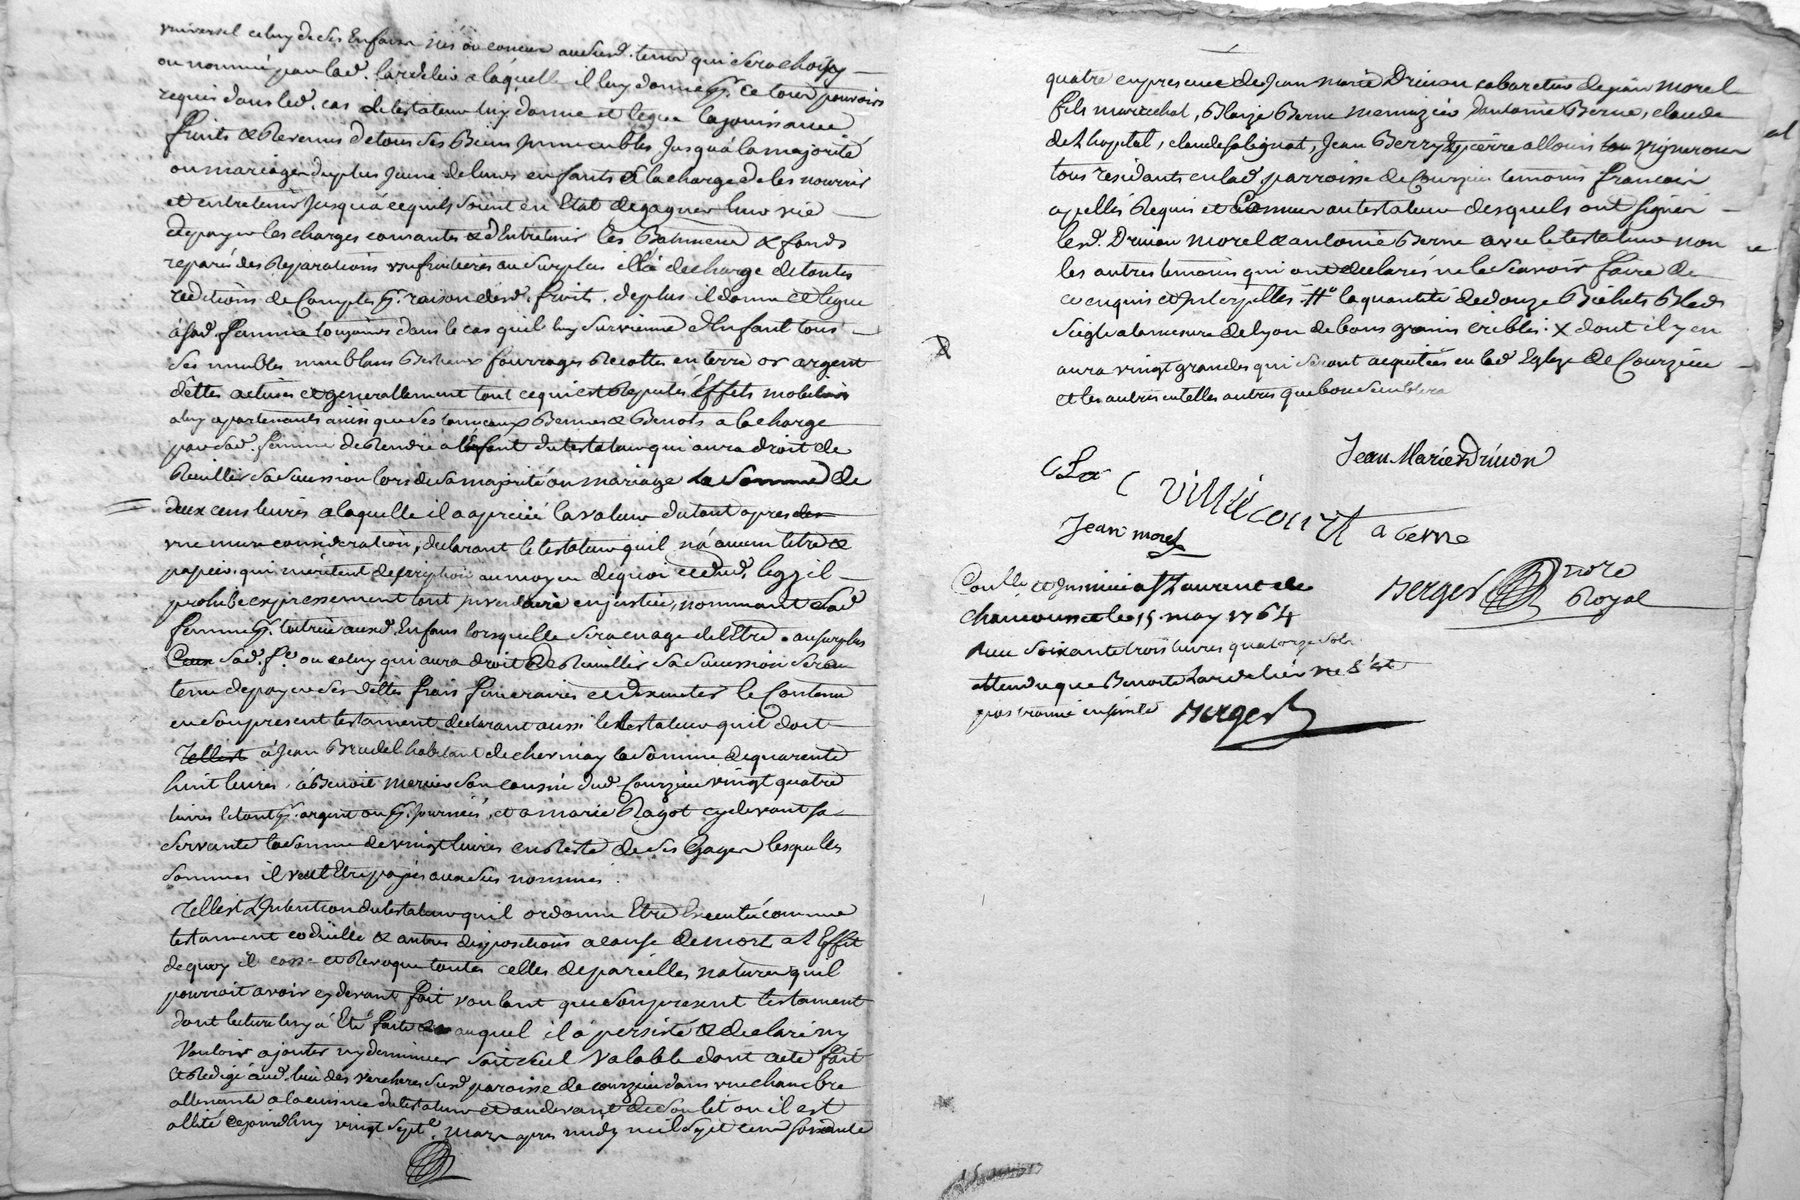 universel celuy de ses Enfans nés ou concus audsd. tems qui sera choisy
ou nommé par lad. Lardelier a laquelle il luy donne pr. ce tous pouvoirs
requis dans led. cas le testateur luy donne et legue la jouissance
fruits & Revenus de tous ses Biens Immeubles Jusqu'a la majorité
ou mariage du plus Jeune de leurs enfants a la charge de les nourrir
et entretenir Jusqu'a ce quils soient en Etat de gagner leur vie
de payer les charges courantes & d'Entretenir les Batiments & fonds
reparés des Reparations usufruitieres au surplus il la decharge de toutes
reditions de Comptes pr. raison desd. fruits. de plus il donne et legue
a sad. femme toujours dans le cas qu'il luy survienne d'Enfant tous
ses meubles meublans Bestiaux fourrages Recoltes en terre or argent
dettes actives et generallement tout ce qui est Reputés Effets mobiliers
a luy apartenants ainsi que ses tonneaux Bennes & Benots a la charge
par sad. femme de Rendre a l'Enfant du testateur qui aura droit de
Receullir sa sucession lors de sa majorité ou mariage la somme de
deux cens livres a laquelle il a aprecié la valeur du tout apres
une mure consideration, declarant le testateur quil n'a aucun titre &
papiers qui meritent description au moyen de quoi legs il
prohibe expressement tout inventaire en justice, nommant sad.
femme pr. tutrice auxd. Enfans lorsquelle sera en age de l'Etre. au surplus
sad. fe. ou celuy qui aura droit de Receuillir sa sucession sera
tenu de payer ses dettes frais funeraires et d'executer le Contenu
en son present testament declarant aussi le testateur quil doit
Tellest a Jean Bradel habitant de chevinay la somme de quarente
huit livres, a Benoit Mercier son cousin dud. Courzieu vingt quatre
livres le tout pr. argent ou pr. journées, et a marie Ragot cy devant sa
servante la somme de vingt livres en Reste de ses Gages lesquelles
sommes il veut Etre payés aux sus nommés.
Tellest L'Intention du testateur quil ordonne Etre Executé comme
testament codicille & autres dispositions a cause de mort a l'Effet
de quoy il casse et Revoque toutes celles de pareilles natures quil
pourroit avoir cy devant fait voulant que son present testament
dont lecture luy a Eté faite auquel il a persisté & declaré ny
Vouloir ajouter ny diminuer soit seul valable dont acte fait
et Redigé aud. lieu des Vercheres susd. paroisse de courzieu dans une chambre
attenante a la cuisine du testateur et au devant de son lit ou il est
alité cejourdhuy vingt septe. mars apres midy mil sept cens soixante
quatre en presence de Jean Marie Drivon cabaretier de pierre Morel
fils marechal, Blaize Berne menuzier d'antoine Berne, claude
de L'hopital, claude Salignat, Jean Berry & pierre vigneron
tous residants en lad. parroisse de Courzieu temoins francois
apellés Requis et Connus au testateur desquels ont signé
lesd. Drivon Morel & antoine Berne avec le testateur non
les autres temoins qui ont declarés ne le scavoir faire de
ce enquis et Interpellés. # la quantité de douze Bichets Bled
Seigle a la mesure de Lyon de bons grains cribles. X dont il y en
aura vingt grandes qui seront acquitées en lad. Eglize de Courzieu
et les autres en telles autres que bon semblera
Jean Marie Drivon
C La
Villecourt
a berne
Jean morel
Berger nore
Royal
Conlle. et Insinué a St Laurent de
chamousset le 15 may 1764
Recu soixante trois livres quatorze sols
attendu que Benoite Lardelier ne s'est
pas trouvé enceinte Berger